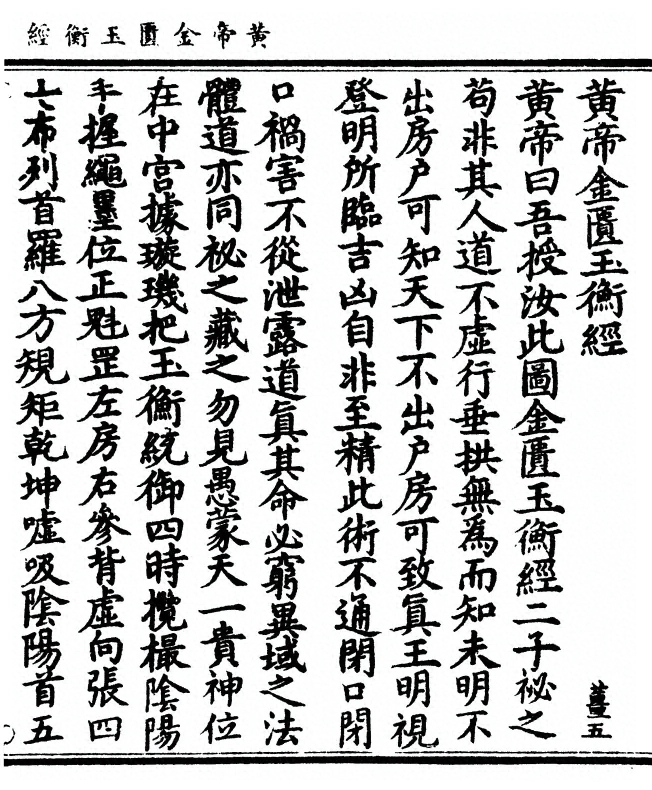 黃帝金匱玉衡經
黃帝金匱玉衡經
薑五
黃帝曰吾授汝此圖金匱玉衡經二子祕之
苟非其人道不虛行垂拱無為而知未明不
出房户可知天下不出户房可致眞王明視
登明所臨吉凶自非至精此術不通閉口閉
口禍害不從泄露道眞其命必窮異域之法
體道亦同祕之藏之勿見愚蒙天一貴神位
在中宮據璇璣把玉衡統御四時攬撮陰陽
手握繩墨位正魁罡左房右參背虛向張四
七布列首羅八方規矩乾坤噓吸陰陽首五